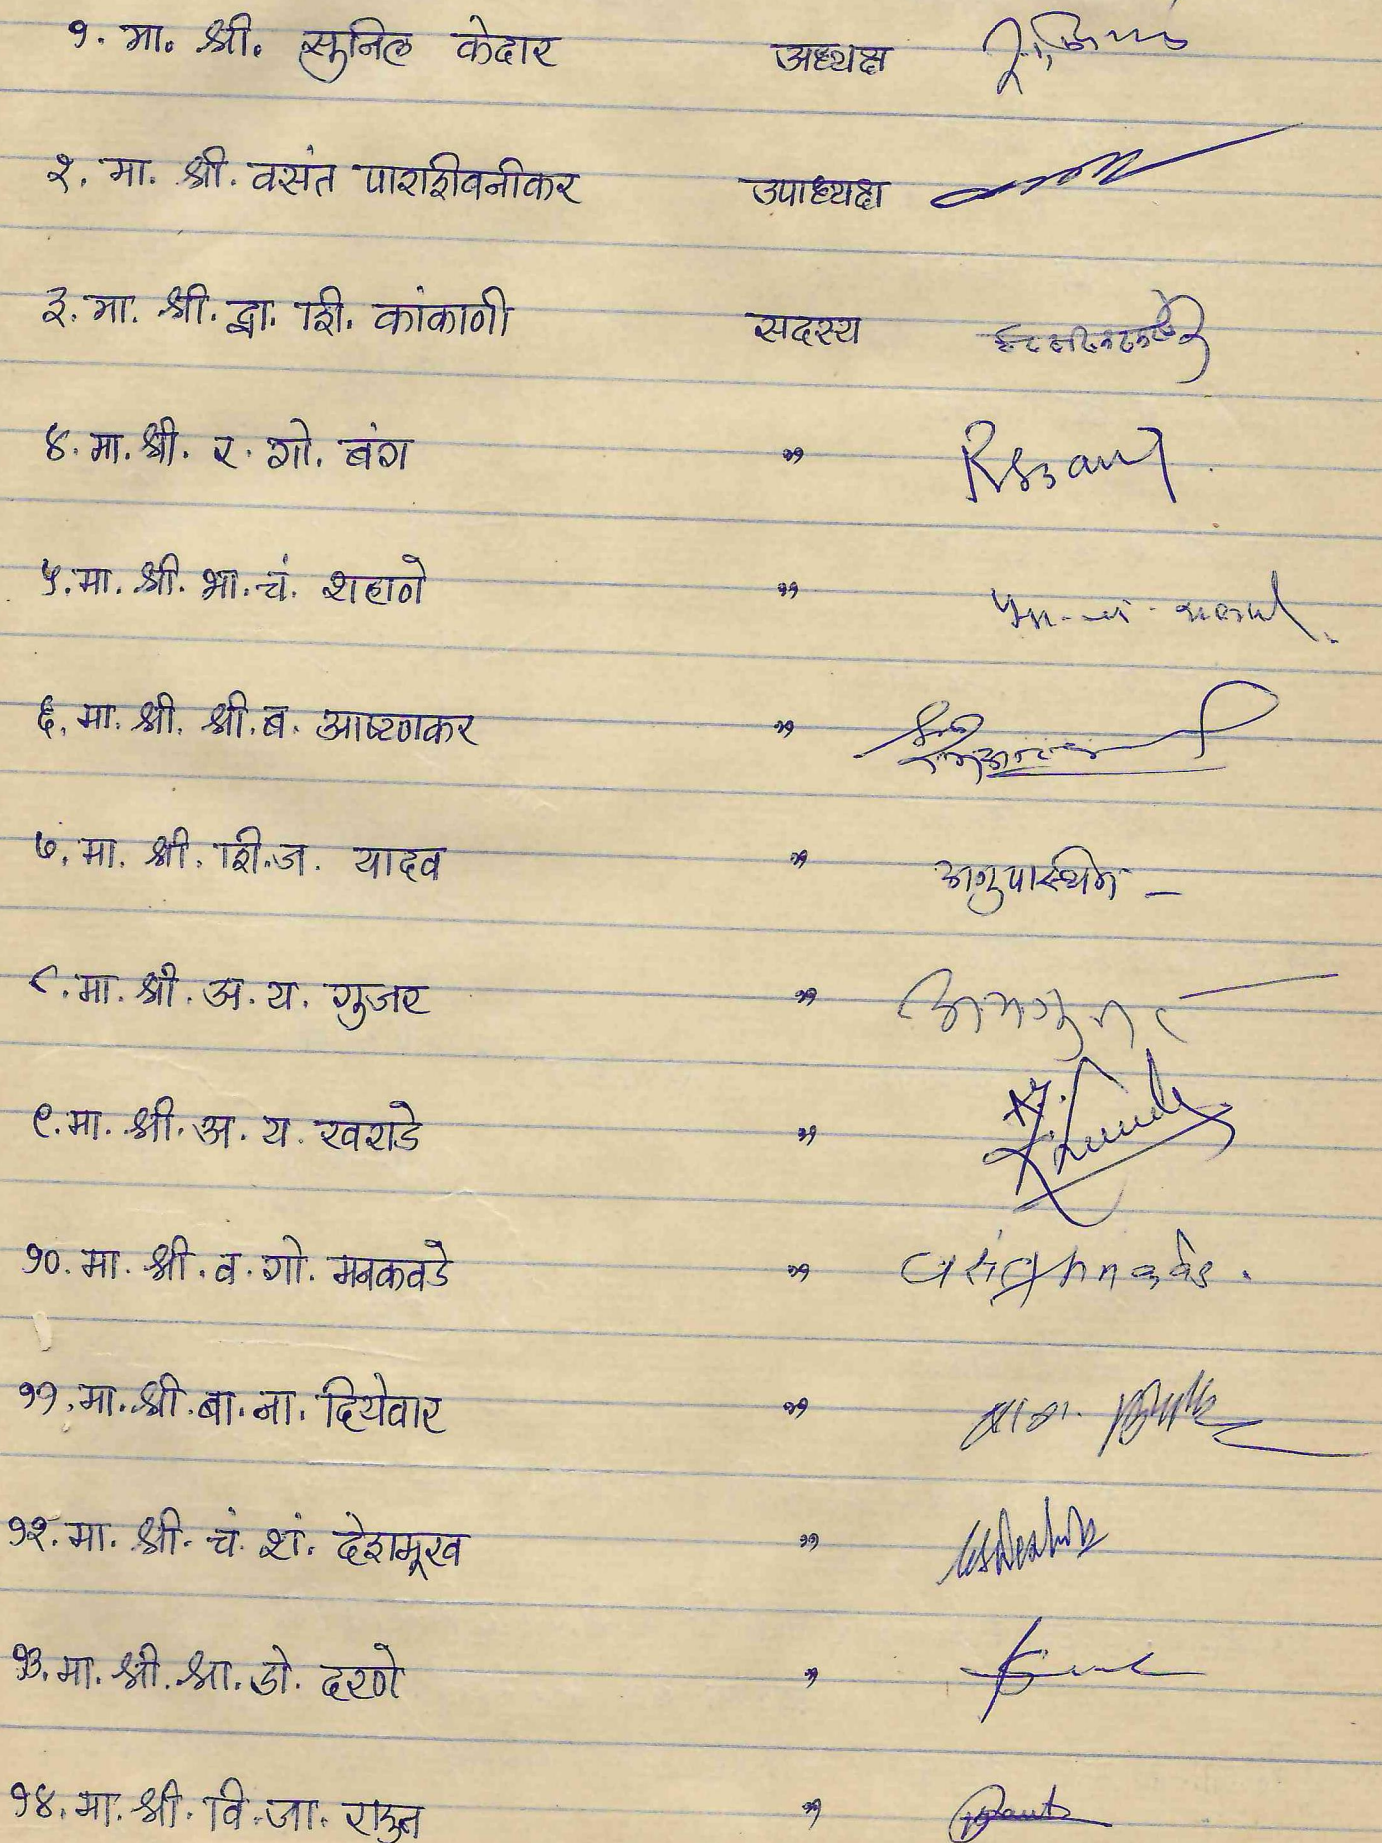 १. मा. श्री. सुनिल केदार अध्यक्ष
२. मा. श्री. वसंत पाराशीवनीकर उपाध्यक्ष
३. मा. श्री. द्वा. शि. कांकाणी सदस्य
४. मा. श्री. र. गो. बंग "
५. मा. श्री. भा. चं. शहाणे "
६. मा. श्री. श्री. ब. आष्टणकर "
७. मा. श्री. शि. ज. यादव " अनुपस्थित -
८. मा. श्री. अ. य. गुजर "
९. मा. श्री. अ. य. खराडे "
१०. मा. श्री. व. गो. मनकवडे "
११. मा. श्री. बा. ना. दियेवार "
१२. मा. श्री. चं. शं. देशमूख "
१३. मा. श्री. श्रा. डो. दरणे "
१४. मा. श्री. वि. जा. राऊत "